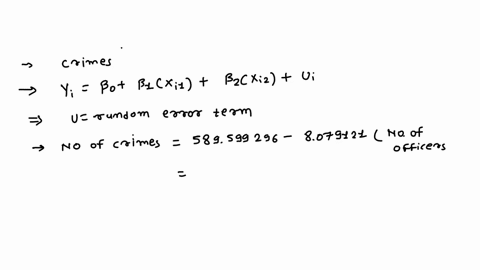 → crimes
→ Yi = β0 + β1(Xi1) + β2(Xi2) + Ui
⇒ U = rundom error term
→ No of crimes = 589.599296 - 8.079121 ( No of officers
=